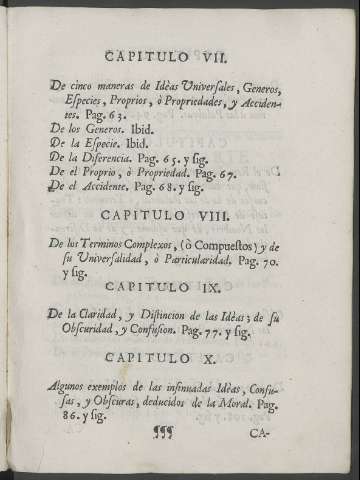 CAPITULO VII.
De cinco maneras de Idèas Universales, Generos,
Especies, Proprios, ò Propriedades, y Acciden-
tes. Pag. 63.
De los Generos. Ibid.
De la Especie. Ibid.
De la Diferencia. Pag. 65. y sig.
De el Proprio, ò Propriedad. Pag. 67.
De el Accidente. Pag. 68. y sig.
CAPITULO VIII.
De los Terminos Complexos, (ò Compuestos) y de
su Universalidad, ò Particularidad. Pag. 70.
y sig.
CAPITULO IX.
De la Claridad, y Distincion de las Idèas; de su
Obscuridad, y Confusion. Pag. 77. y sig.
CAPITULO X.
Algunos exemplos de las insinuadas Idèas, Confu-
sas, y Obscuras, deducidos de la Moral. Pag.
86. y sig.
¶¶¶ CA-